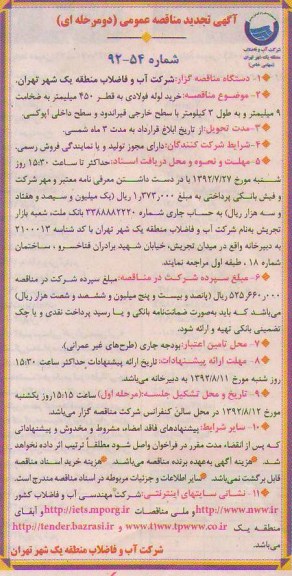 آگهی تجدید مناقصه عمومی (دومرحله ای)
شماره ۵۴-۹۲
شرکت آب و فاضلاب
منطقه یک شهر تهران
(سهامی خاص)
۱- دستگاه مناقصه گزار: شرکت آب و فاضلاب منطقه یک شهر تهران.
۲- موضوع مناقصه: خرید لوله فولادی به قطر ۴۵۰ میلیمتر به ضخامت
۹ میلیمتر و به طول ۳ کیلومتر با سطح خارجی فیراندود و سطح داخلی اپوکسی.
۳- مدت تحویل: از تاریخ ابلاغ قرارداد به مدت ۳ ماه شمسی.
۴- شرایط شرکت کنندگان: دارای مجوز تولید و یا نمایندگی فروش رسمی.
۵- مهلت و نحوه و محل دریافت اسناد: حداکثر تا ساعت ۱۵:۳۰ روز
شنبه مورخ ۱۳۹۲/۷/۲۷ با در دست داشتن معرفی نامه معتبر و مهر شرکت
و فیش بانکی پرداختی به مبلغ ۱٫۳۷۳٫۰۰۰ ریال (یک میلیون و سیصد و هفتاد
و سه هزار ریال) به حساب جاری شماره ۳۳۸۸۸۲۲۲۰ بانک ملت، شعبه بازار
تجریش به‌نام شرکت آب و فاضلاب منطقه یک شهر تهران با کد شناسه ۲۱۰۰۰۱۳
به دبیرخانه واقع در میدان تجریش، خیابان شهید برادران فتاخسرو ، ساختمان
شماره ۱۸، طبقه اول مراجعه نمایند.
۶- مبلغ سپرده شرکت در مناقصه: مبلغ سپرده شرکت در مناقصه
۵۲۵٫۶۶۰٫۰۰۰ ریال (پانصد و بیست و پنج میلیون و ششصد و شصت هزار ریال)
می‌باشد که باید به‌صورت ضمانت‌نامه بانکی و یا رسید پرداخت نقدی و یا چک
تضمینی بانکی تهیه و ارائه شود.
۷- محل تامین اعتبار: بودجه جاری (طرح‌های غیر عمرانی).
۸- مهلت ارائه پیشنهادات: تاریخ ارائه پیشنهادات حداکثر ساعت ۱۵:۳۰
روز شنبه مورخ ۱۳۹۲/۸/۱۱ به دبیرخانه می‌باشد.
۹- تاریخ و محل تشکیل جلسه: (مرحله اول) ساعت ۱۵:۱۵ روز یکشنبه
مورخ ۱۳۹۲/۸/۱۲ در محل سالن کنفرانس شرکت مناقصه گزار می‌باشد.
۱۰- سایر شرایط: پیشنهادهای فاقد امضاء، مشروط و مخدوش و پیشنهاداتی
که پس از انقضاء مدت مقرر در فراخوان واصل شود مطلقاً ترتیب اثر داده نخواهد
شد. هزینه آگهی به‌عهده برنده مناقصه می‌باشد. هزینه خرید اسناد مناقصه
قابل برگشت نمی‌باشد. سایر اطلاعات و جزئیات مربوطه در اسناد مناقصه مندرج است.
۱۱- نشانی سایتهای اینترنتی: شرکت مهندسی آب و فاضلاب کشور
http://www.nww.ir و ملی مناقصات http://iets.mporg.ir و آبفای
منطقه یک www.t1ww.tpwww.co.ir و http://tender.bazrasi.ir
می‌باشد.
شرکت آب و فاضلاب منطقه یک شهر تهران